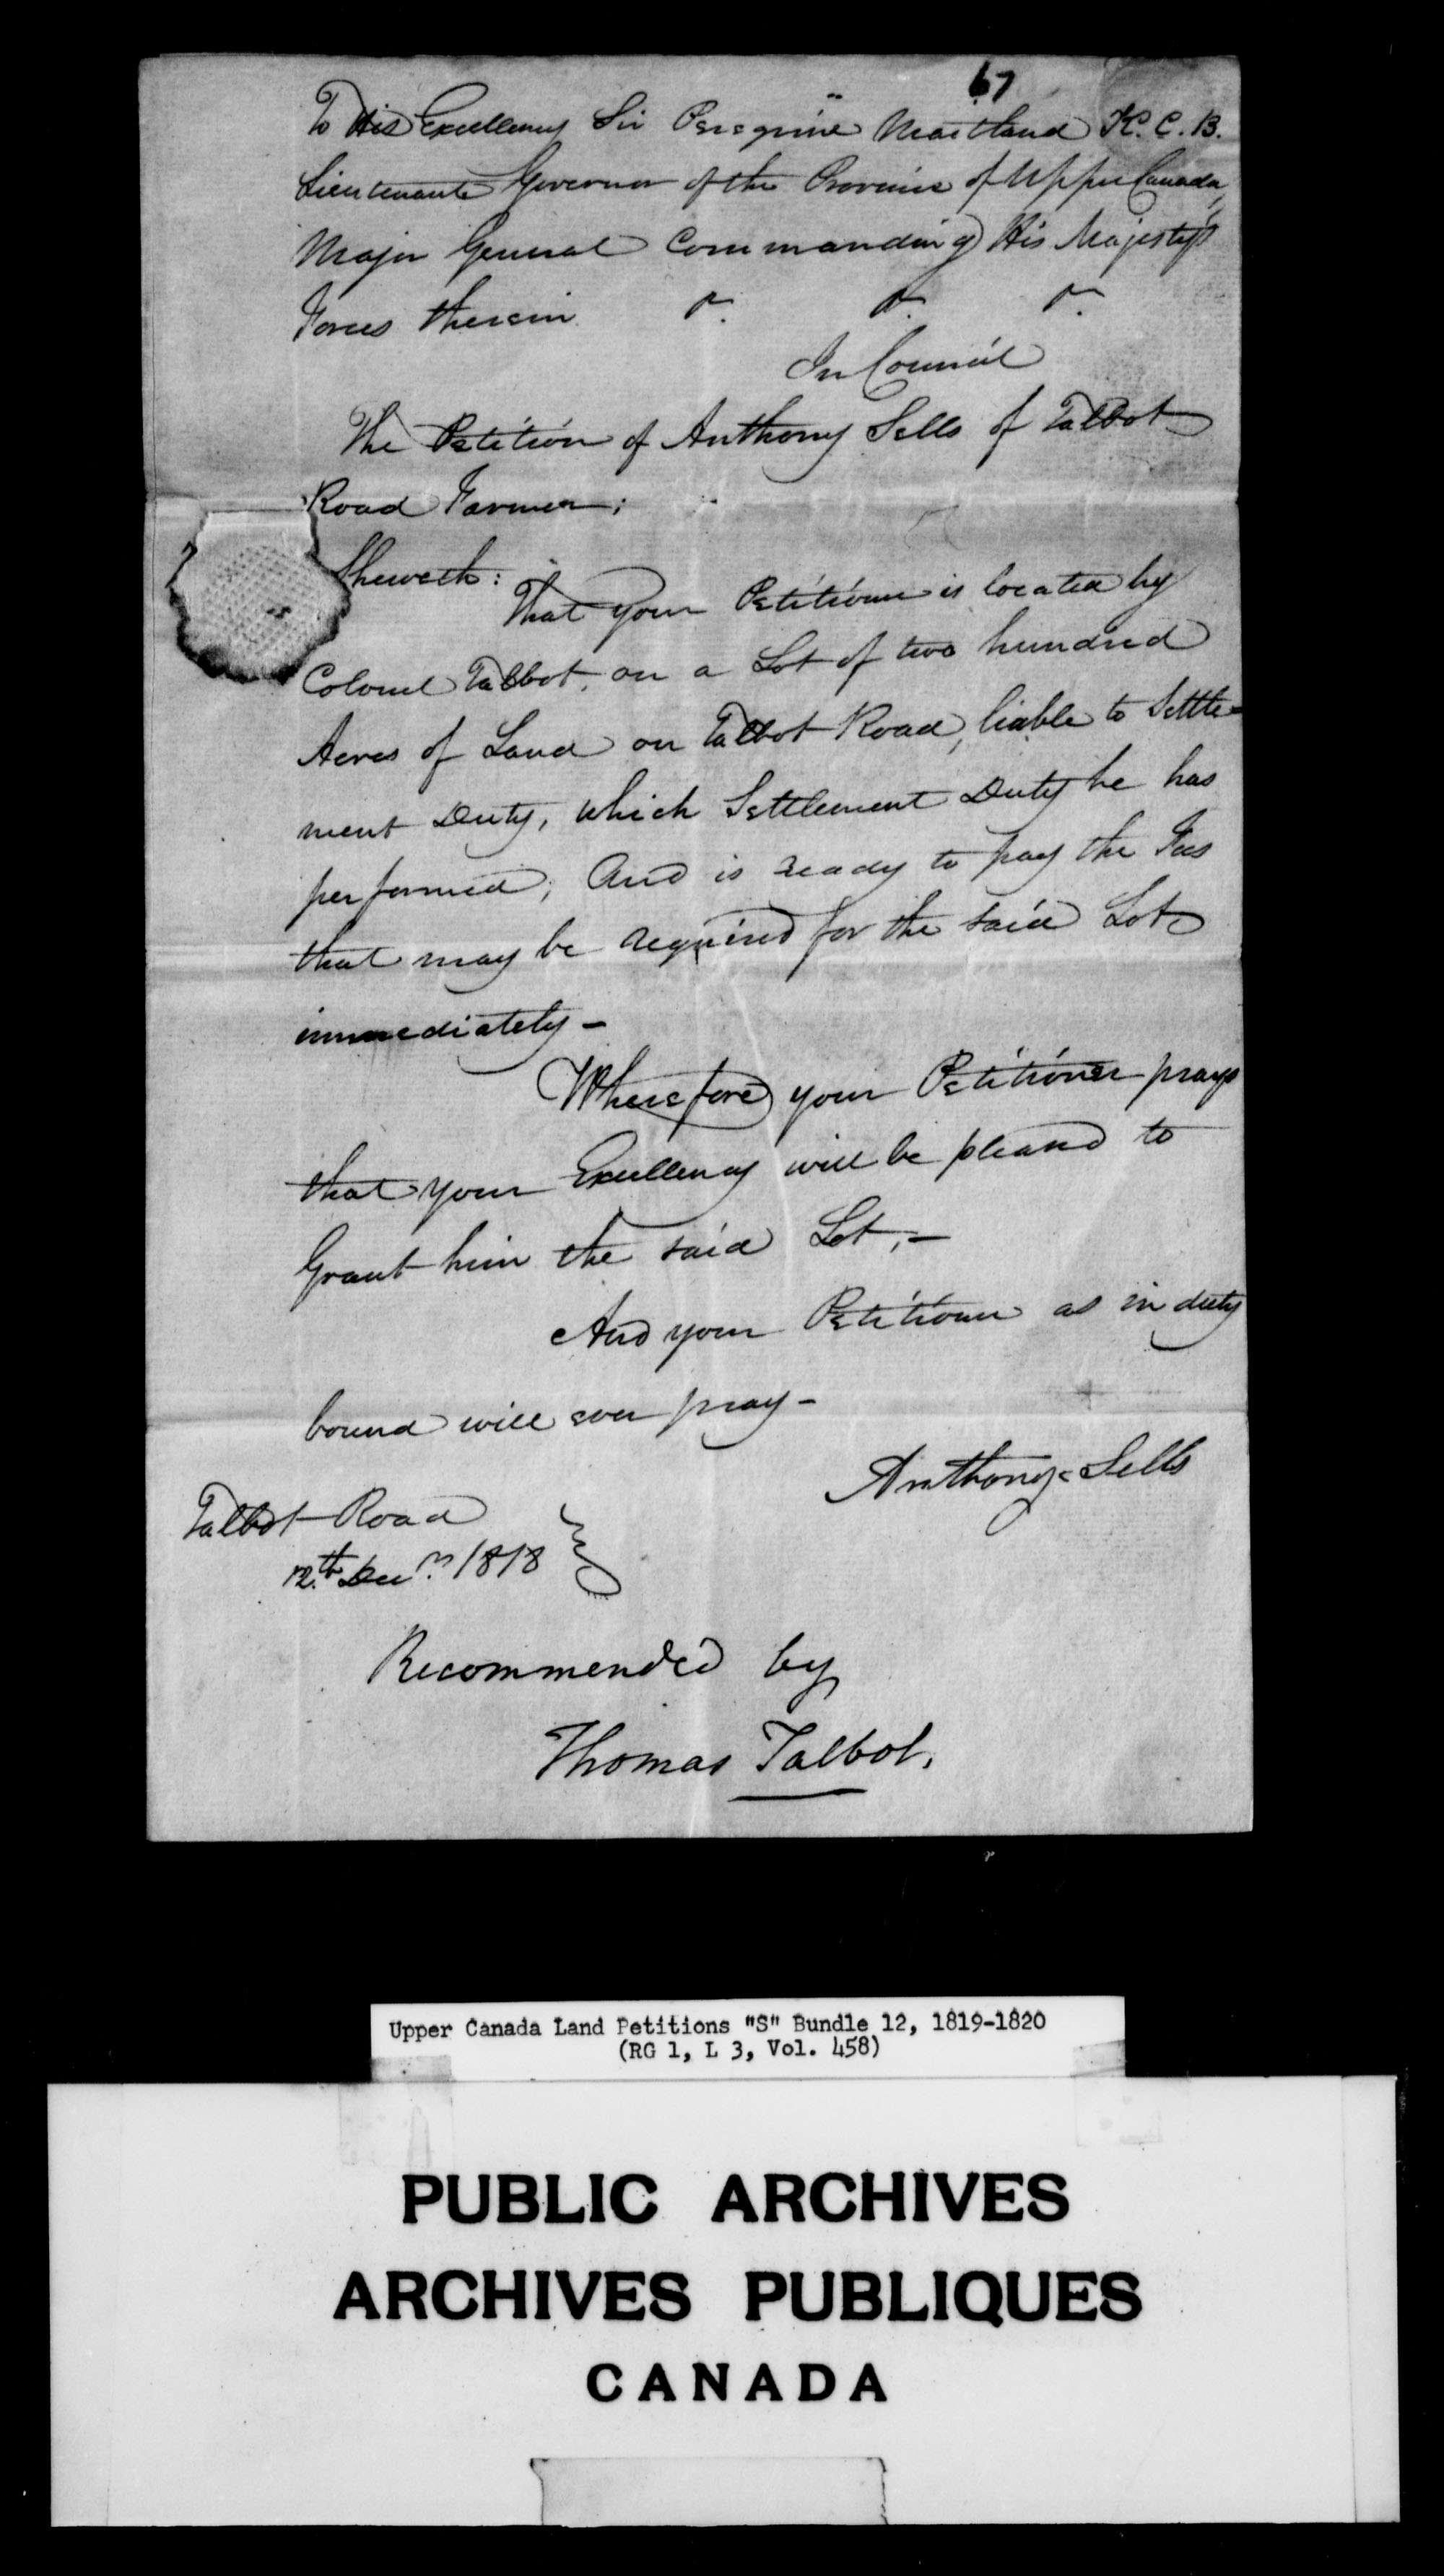 67
To His Excellency Sir Peregrine Maitland K.C.B.
Lieutenant Governor of the Province of Upper Canada,
Major General Commanding His Majesty's
Forces therein &c. &c. &c.
In Council
The Petition of Anthony Sells of Talbot
Road Farmer;
Sheweth:
That your Petitioner is located by
Colonel Talbot, on a Lot of two hundred
Acres of Land on Talbot Road, liable to Settle=
ment Duty, which Settlement Duty he has
performed; And is ready to pay the Fees
that may be required for the said Lot
immediately -
Wherefore your Petitioner prays
that your Excellency will be pleased to
Grant him the said Lot, -
And your Petitioner as in duty
bound will ever pray -
Anthony Sells
Talbot Road
12th Decr. 1818
Recommended by
Thomas Talbot.
Upper Canada Land Petitions "S" Bundle 12, 1819-1820
(RG 1, L 3, Vol. 458)
PUBLIC ARCHIVES
ARCHIVES PUBLIQUES
CANADA